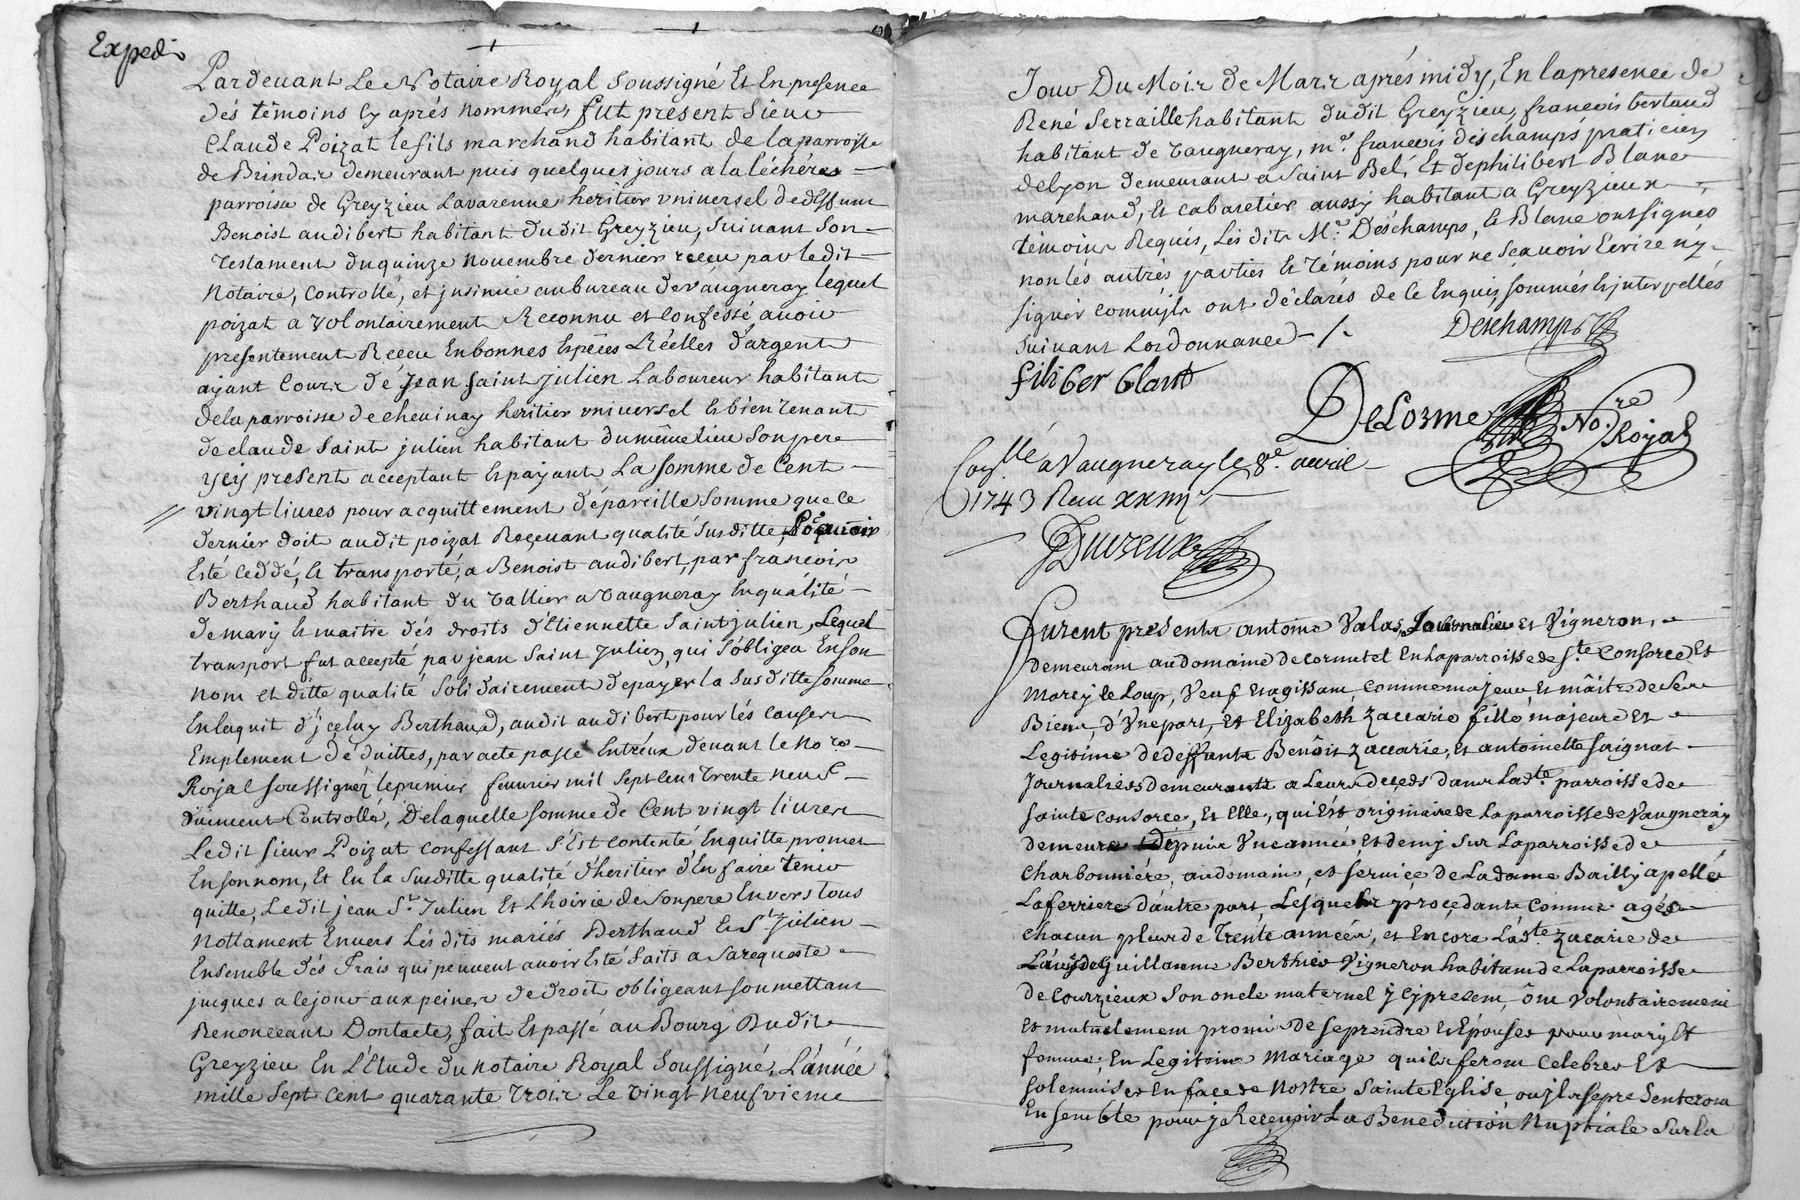 Expedié
Pardevant Le Notaire Royal Soussigné Et En presence
dés témoins Cy aprés nommés, fut present Sieur
Claude Poizat le fils marchand habitant de la parroisse
de Brindas demeurant puis quelques jours a la léchére
parroisse de Greyzieu Lavarenne heritier universel de deffunt
Benoist audibert habitant dudit Greyzieu, Suivant Son
Testament du quinze Novembre dernier reçeu par ledit
Notaire, Controllé, et jnsinué au bureau de vaugneray lequel
poizat a Volontairement Reconnu et Confessé avoir
presentement Reçeu En bonnes Espéces Réelles d'argent
ayant Cours de Jean Saint julien Laboureur habitant
de la parroisse de chevinay heritier universel Et bien tenant
de claude Saint julien habitant du même lieu Son pere
ycy present acceptant Et payant La Somme de Cent
vingt livres pour acquittement de pareille Somme que Ce
dernier doit audit poizat Reçevant qualité Susditte,
Esté Ceddé, Et transporté, a Benoist audibert, par francois
Berthaud habitant du Vallier a Vaugneray En qualité
de mary Et maitre dés droits d'Etiennette Saint julien, Lequel
transport fut accepté par jean Saint Julien, qui S'obligea En Son
nom et ditte qualité Solidairement de payer la Susditte Somme
En l'aquit d'jceluy Berthaud, audit audibert pour lés Causes
Emplement déduittes, par acte passé Entr'eux devant le Nore
Royal Soussigné, le premier fevrier mil Sept Cent Trente neuf
duement Controllé, De laquelle Somme de Cent vingt livres
Ledit Sieur Poizat Confessant S'Est Contenté En quitte promet
En Son nom, Et En la Susditte qualité d'heritier d'En faire tenir
quitte, Ledit jean St. Julien Et L'hoirie de Son pere Envers tous
Nottament Envers Lés dits mariés Berthaud Et St. Julien
Ensemble dés frais qui peuvent avoir Esté faits a Sa requeste
jusques a Ce jour aux peines de droit obligeant Soumettant
Renonceant Dont acte, fait Et passé au Bourg Dudit
Greyzieu En L'Etude du Notaire Royal Soussigné, L'année
mille Sept Cent quarante Trois Le vingt neufvieme
Jour Du Mois de Mars aprés midy, En la presence de
René Serraille habitant dudit Greyzieu, francois bertaud
habitant de Vaugneray, me. francois déschamps praticien
de lyon demeurant a Saint Bel, Et de philibert Blanc
marchand, Et Cabaretier aussy habitant a Greyzieux
témoins Requis, Lés dits Me. Déschamps, Et Blanc ont Signés
non lés autrés parties Et Témoins pour ne Sçavoir Ecrire ny
Signer Comm'jls ont déclarés de Ce Enquis, Sommés Et jnterpellés
Suivant L'ordonnance
Deschamps
filiber blanc
DeLorme Nore. Royal
Conllé a Vaugneray le 8e. avril
1743 Reçu
Furent presents antoine Valas, Journalier et Vigneron,
demeurant au domaine de cornutel En la parroisse de Ste. Consorce Et
Marcy le Loup, Veuf Et agissant Comme majeur Et maître de Ses
Biens, d'Une part, Et Elizabeth Zaccarie fille majeure Et
Legitime de deffunts Benoist Zaccarie, Et antoinette Saignat
Journaliers demeurants a Leurs deçeds dans Ladte. parroisse de
Sainte Consorce, Et Elle, qui Est originaire de La parroisse de Vaugneray
demeure dépuis Une année, Et demy Sur La parroisse de
Charbonniére, au domain, et Service de La dame Bailly apellé
La ferriere d'autre part, Lesquels proçedants Comme agés
Chacun plus de Trente années, et Encore Ladte. Zacarie de
L'avis de Guillaume Berthier Vigneron habitant de La parroisse
de Courzieux Son oncle maternel ycy present, ônt Volontairement
Et mutuelement promis de Se prendre Et Epouser pour mary Et
femme, En Legitime Mariage qu'ils feront Celebrer Et
Solemniser En face de Nostre Sainte Eglise, ou jls Se presenteront
Ensemble pour y Recevoir La Benediction Nuptiale Sur la